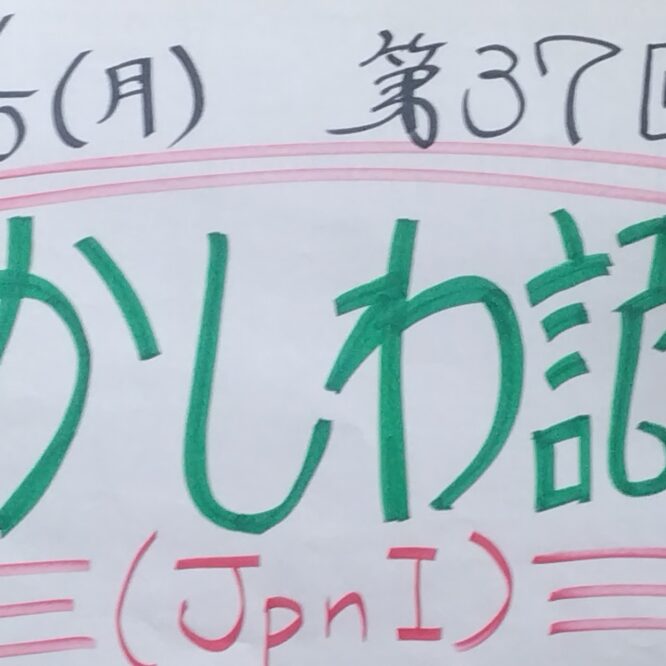 (月) 第37
かしわ
(JpnI)